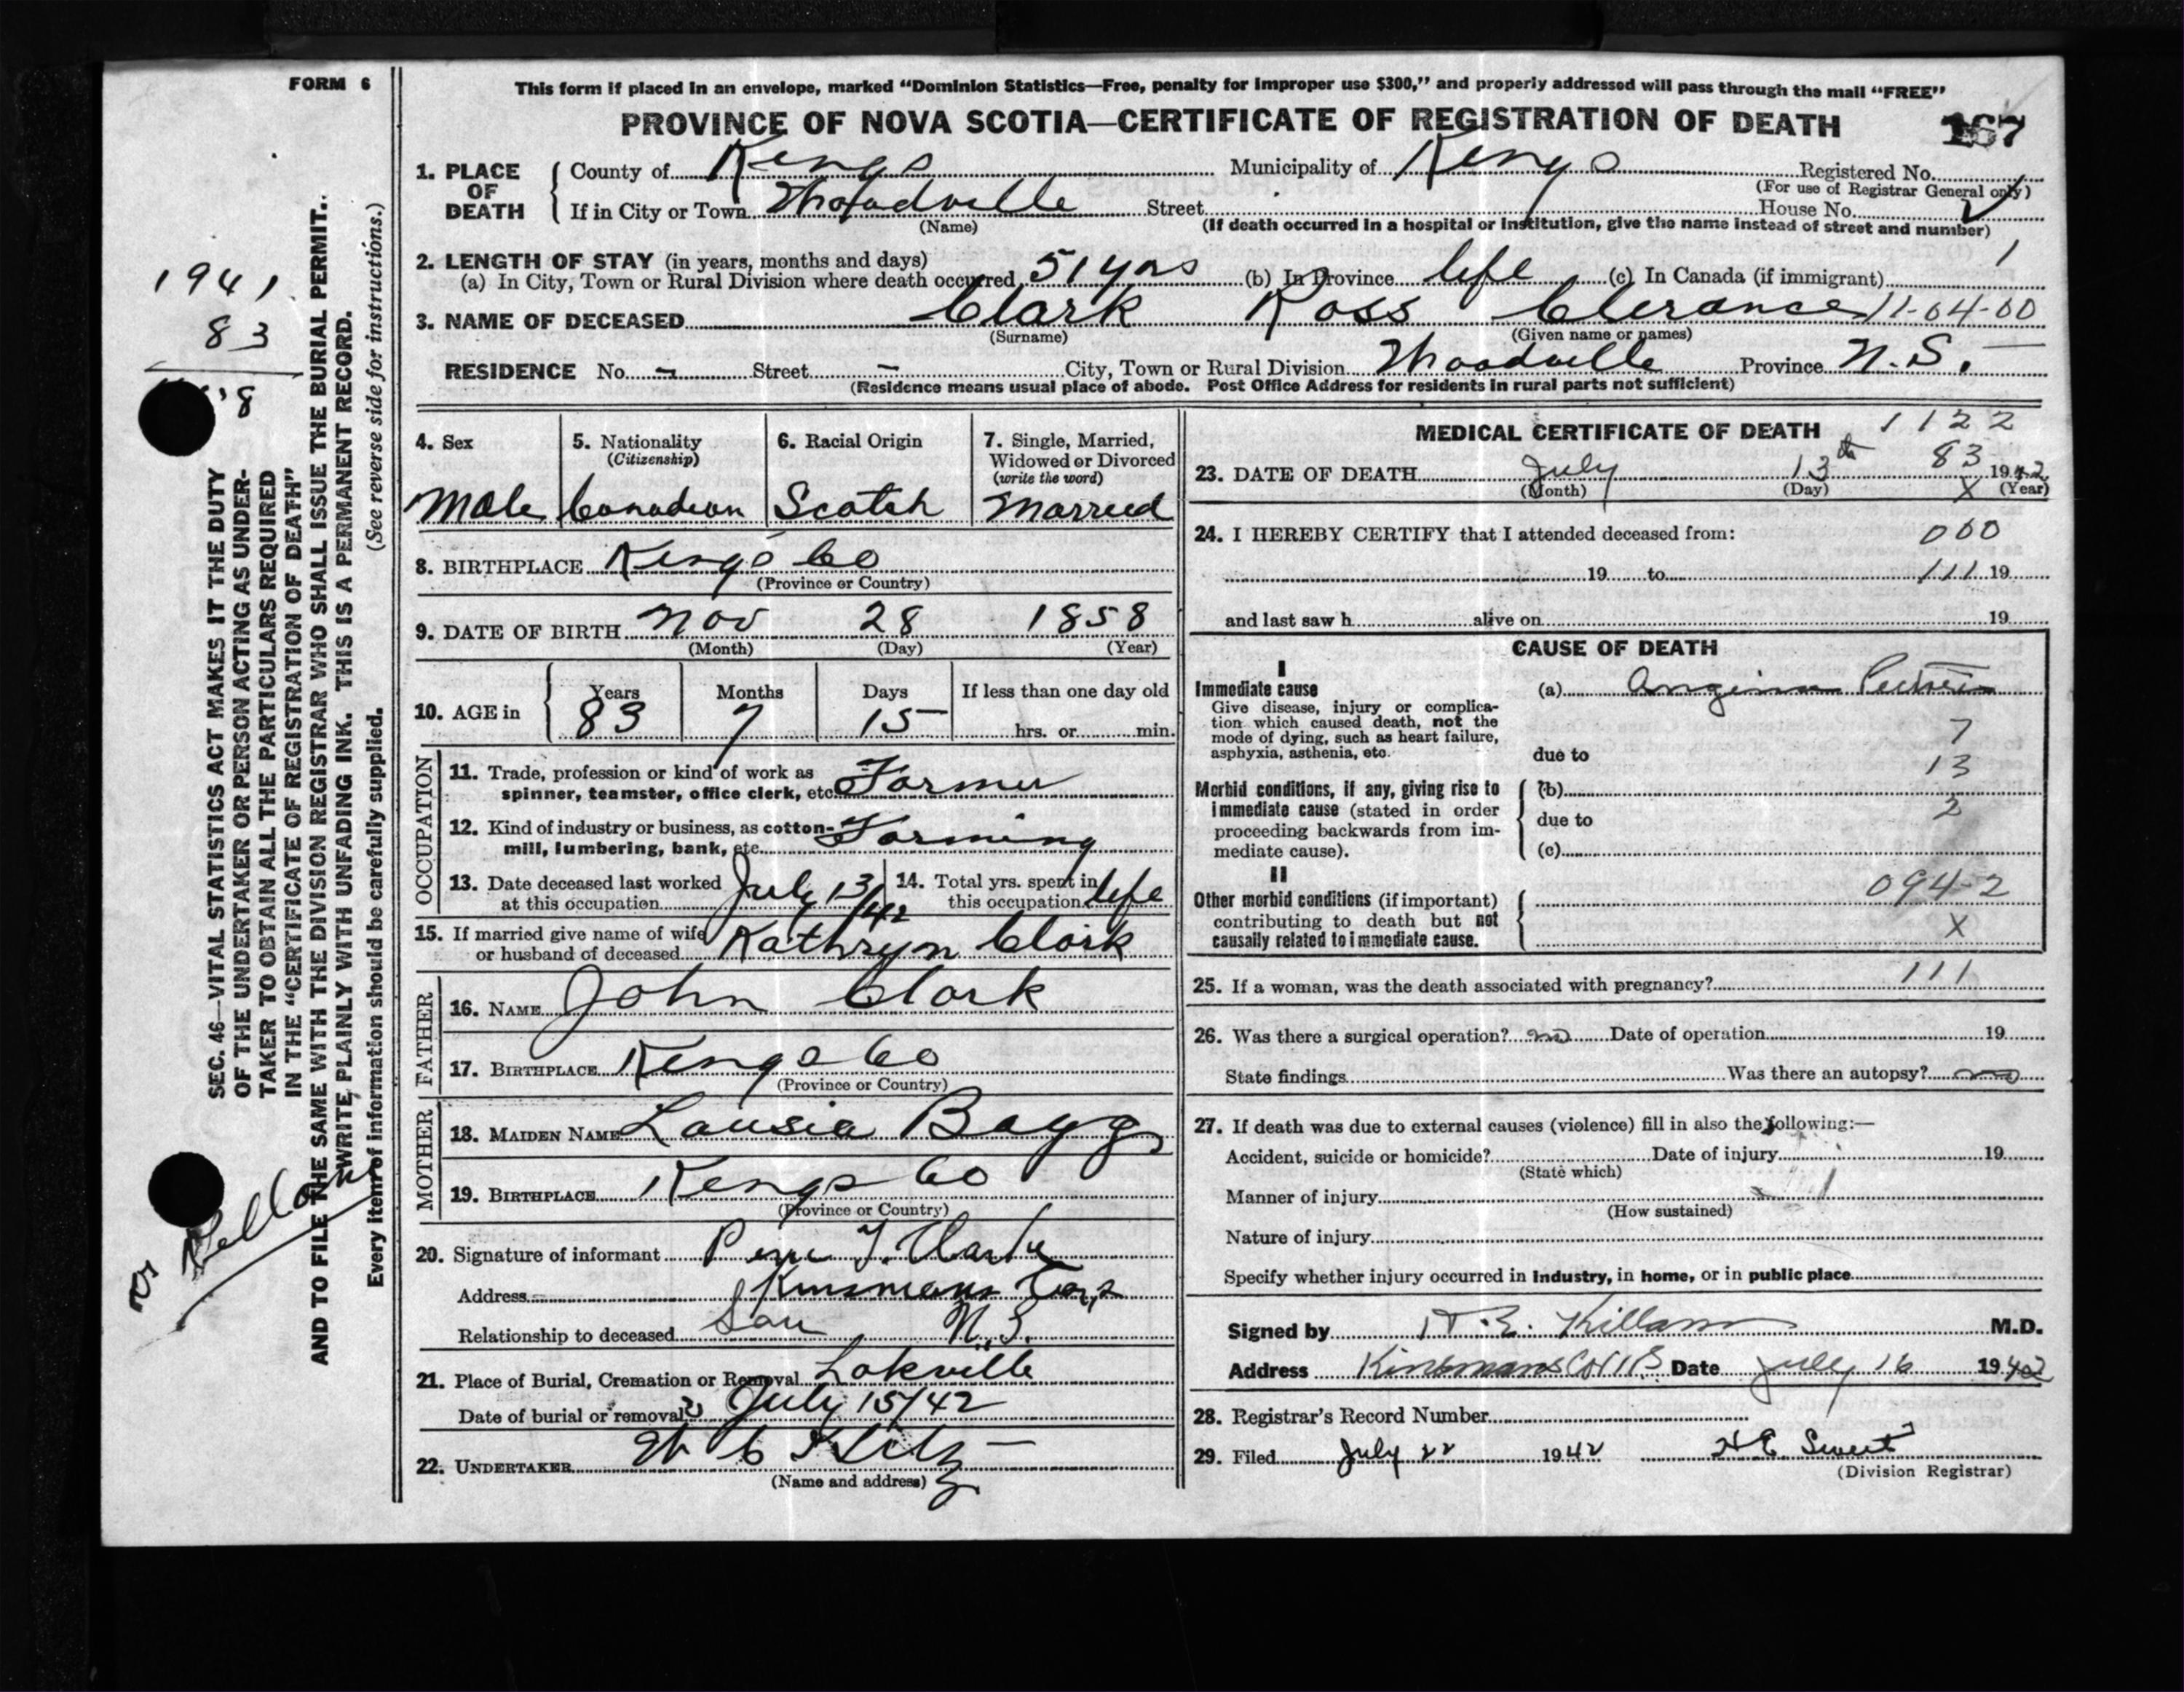 FORM 6
This form if placed in an envelope, marked "Dominion Statistics—Free, penalty for improper use $300," and properly addressed will pass through the mail "FREE"
PROVINCE OF NOVA SCOTIA—CERTIFICATE OF REGISTRATION OF DEATH 167
1. PLACE OF DEATH
County of Kings Municipality of Kings Registered No.
(For use of Registrar General only)
If in City or Town Woodville Street House No.
(Name) (If death occurred in a hospital or institution, give the name instead of street and number)
2. LENGTH OF STAY (in years, months and days)
(a) In City, Town or Rural Division where death occurred 51 yrs (b) In Province life (c) In Canada (if immigrant) 1
3. NAME OF DECEASED Clark Ross Clerance 11-04-00
(Surname) (Given name or names)
RESIDENCE No. - Street - City, Town or Rural Division Woodville Province N.S.
(Residence means usual place of abode. Post Office Address for residents in rural parts not sufficient)
4. Sex
Male
5. Nationality
(Citizenship)
Canadian
6. Racial Origin
Scotch
7. Single, Married,
Widowed or Divorced
(write the word)
Married
8. BIRTHPLACE Kings Co
(Province or Country)
9. DATE OF BIRTH Nov 28 1858
(Month) (Day) (Year)
10. AGE in
Years Months Days If less than one day old
83 7 15 hrs. or min.
OCCUPATION
11. Trade, profession or kind of work as
spinner, teamster, office clerk, etc. Farmer
12. Kind of industry or business, as cotton-
mill, lumbering, bank, etc. Farming
13. Date deceased last worked
at this occupation July 13/42
14. Total yrs. spent in
this occupation life
15. If married give name of wife
or husband of deceased Kathryn Clark
FATHER
16. NAME John Clark
17. BIRTHPLACE Kings Co
(Province or Country)
MOTHER
18. MAIDEN NAME Lousia Bagg
19. BIRTHPLACE Kings Co
(Province or Country)
20. Signature of informant
Address Kinsmans
Relationship to deceased Son N.S.
21. Place of Burial, Cremation or Removal Lakville
Date of burial or removal July 15/42
22. UNDERTAKER
(Name and address)
MEDICAL CERTIFICATE OF DEATH 1122
83
23. DATE OF DEATH July 13th 1942
(Month) (Day) X (Year)
24. I HEREBY CERTIFY that I attended deceased from: 000
19 to 111 19
and last saw h alive on 19
CAUSE OF DEATH
I
Immediate cause
Give disease, injury or complica-
tion which caused death, not the
mode of dying, such as heart failure,
asphyxia, asthenia, etc.
(a) Angina Pectoris
7
due to
13
Morbid conditions, if any, giving rise to
immediate cause (stated in order
proceeding backwards from im-
mediate cause).
(b)
2
due to
(c)
II
Other morbid conditions (if important)
contributing to death but not
causally related to immediate cause.
094-2
X
111
25. If a woman, was the death associated with pregnancy?
26. Was there a surgical operation? no Date of operation 19
State findings Was there an autopsy? no
27. If death was due to external causes (violence) fill in also the following:—
Accident, suicide or homicide? Date of injury 19
(State which)
Manner of injury
(How sustained)
Nature of injury
Specify whether injury occurred in industry, in home, or in public place
Signed by Killam M.D.
Address Kinsmans Date July 16 1942
28. Registrar's Record Number
29. Filed July 22 1942
(Division Registrar)
SEC. 46—VITAL STATISTICS ACT MAKES IT THE DUTY
OF THE UNDERTAKER OR PERSON ACTING AS UNDER-
TAKER TO OBTAIN ALL THE PARTICULARS REQUIRED
IN THE "CERTIFICATE OF REGISTRATION OF DEATH"
AND TO FILE THE SAME WITH THE DIVISION REGISTRAR WHO SHALL ISSUE THE BURIAL PERMIT.
WRITE PLAINLY WITH UNFADING INK. THIS IS A PERMANENT RECORD.
Every item of information should be carefully supplied. (See reverse side for instructions.)
1941
83